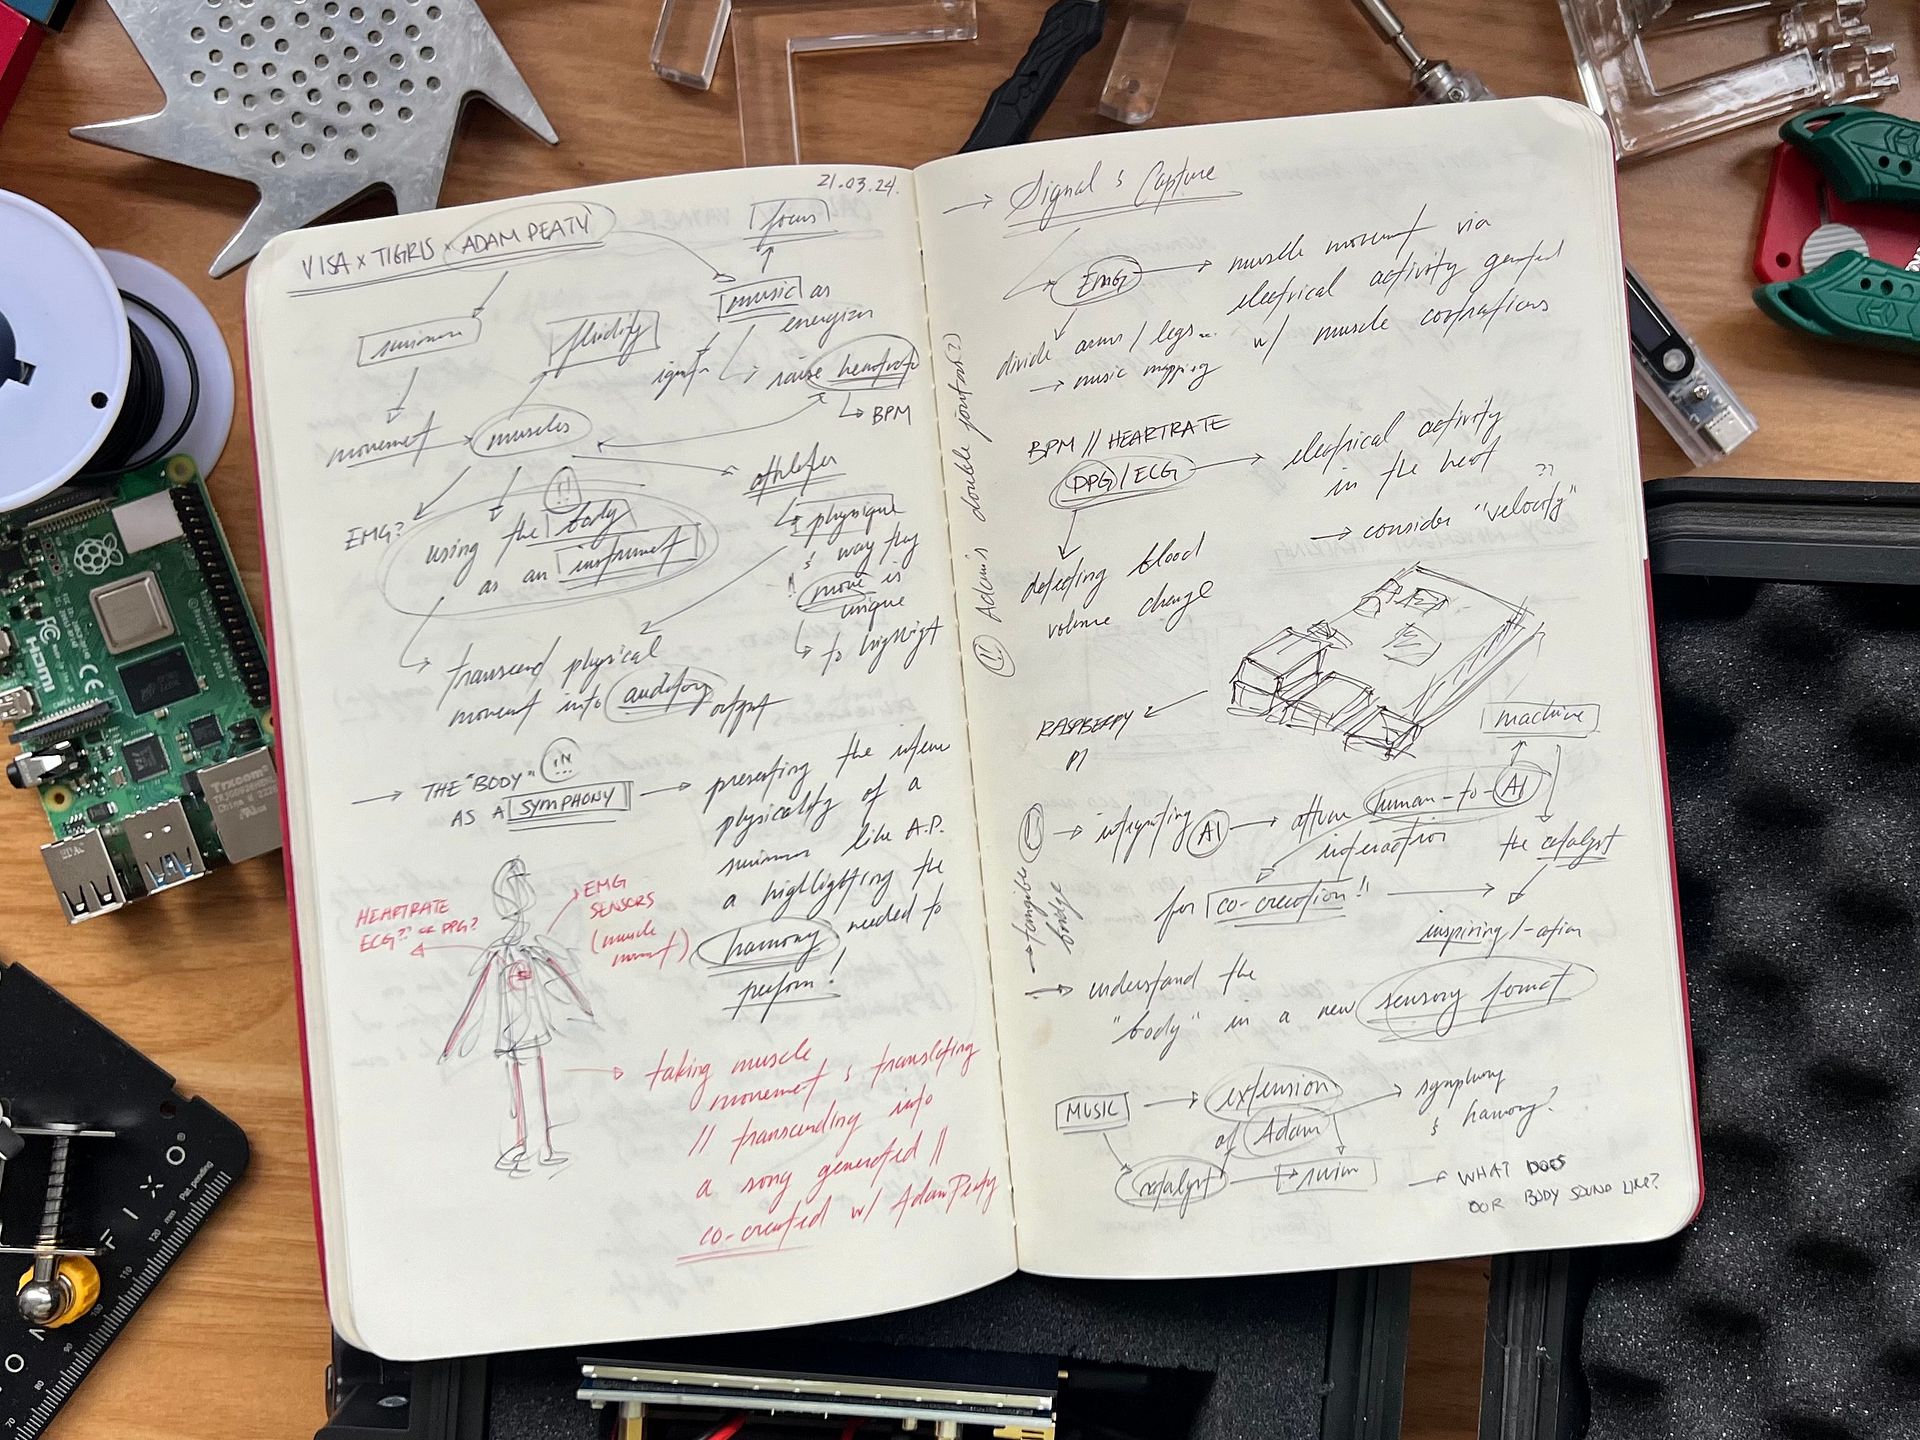 21.03.24.
VISA x TIGRIS x ADAM PEATY
focus
music as
energizer
swimmer
fluidity
raise heartrate
BPM
movement
muscles
athletes
EMG?
!!
using the body
as an instrument
physique
& way they
! move is
unique
to highlight
transcend physical
movement into auditory output
THE "BODY"
AS A SYMPHONY
presenting the intense
physicality of a
swimmer like A.P.
a highlighting the
harmony needed to
perform!
HEARTRATE
ECG?? or PPG?
EMG
SENSORS
(muscle
movement)
taking muscle
movement & translating
// transcending into
a song generated //
co-created w/ Adam Peaty
Signal & Capture
EMG
muscle movement via
electrical activity generated
w/ muscle contractions
divide arms / legs...
music mapping
!! Adam is double jointed?)
BPM // HEARTRATE
PPG / ECG
electrical activity
in the heart
??
consider "velocity"
detecting blood
volume change
RASPBERRY
PI
machine
integrating AI
human-to-AI
interaction
the catalyst
for co-creation!!
inspiring/-ation
tangible
bridge
understand the
"body" in a new sensory format
MUSIC
extension
of Adam
symphony
& harmony?
catalyst
swim
WHAT DOES
OUR BODY SOUND LIKE?
HDMI
FC
CE
Raspberry Pi
Trxcom
China
Pat pending
120 mm
110
100
90
80
70
F I